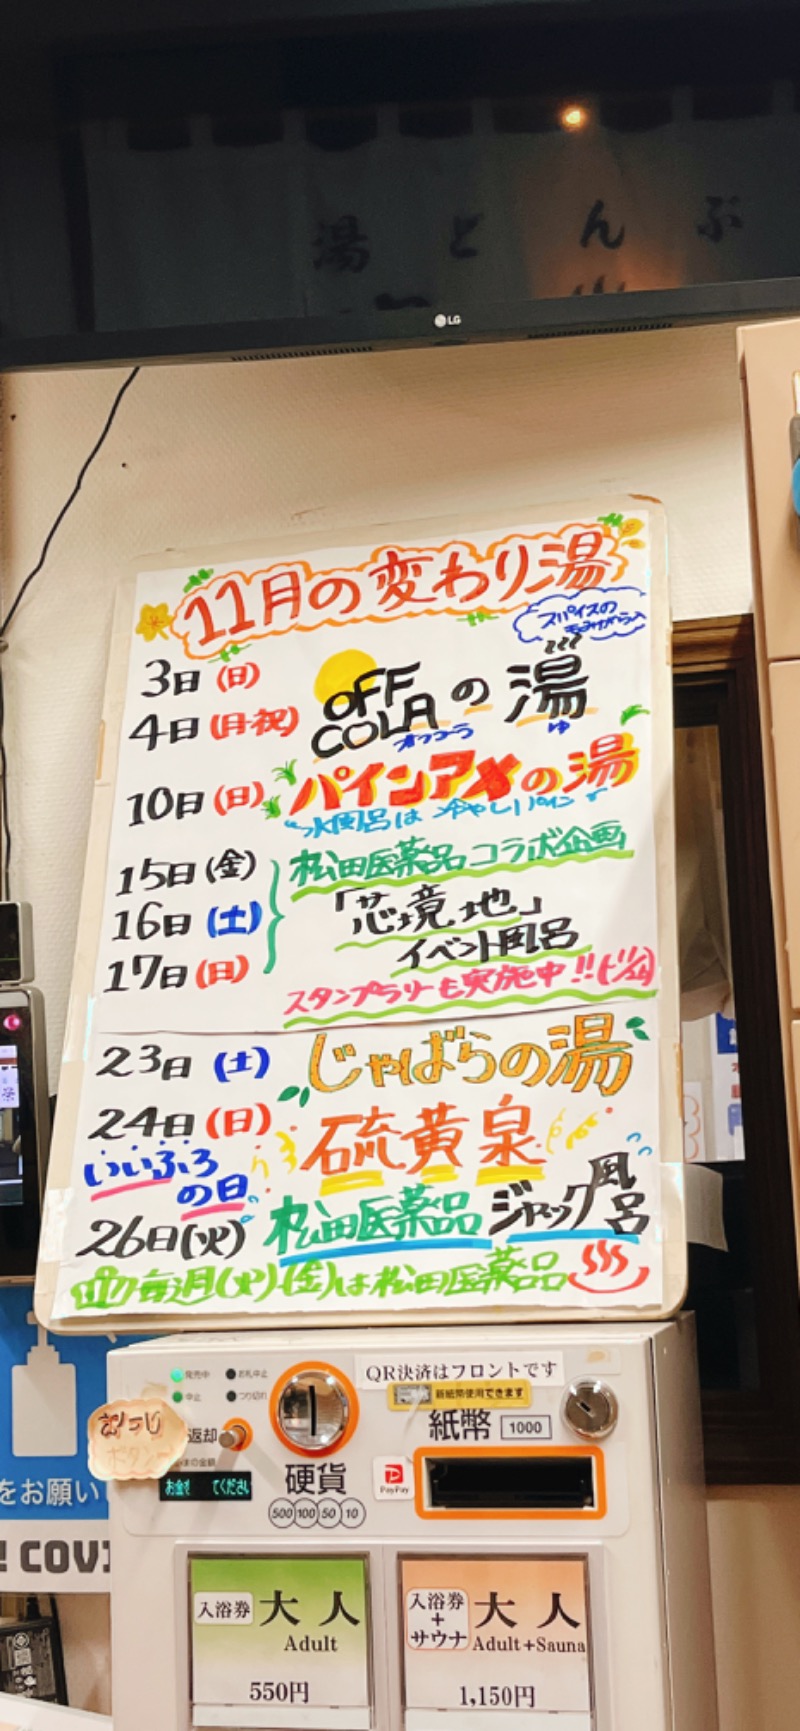 湯どんぶ
LG
11月の変わり湯
スパイスの
3日(日)
4日(月・祝)
OFF COLAの湯
オフコーラ ゆ
10日(日) パインアメの湯
水風呂は冷やしパイン
15日(金)
16日(土)
17日(日)
松田医薬品コラボ企画
「芯境地」
イベント風呂
スタンプラリーも実施中!!
23日(土) じゃばらの湯
24日(日) 硫黄泉
いいふろ
の日
26日(火) 松田医薬品 ジャック風呂
毎週(火)(金)は松田医薬品
発売中 お札中止
中止 つり切れ
QR決済はフロントです
新紙幣使用できます
紙幣 1000
おつり
ボタン
返却
お金を てください
硬貨
500 100 50 10
PayPay
をお願い
! COV
入浴券 大人
Adult
550円
入浴券
+
サウナ
大人
Adult+Sauna
1,150円